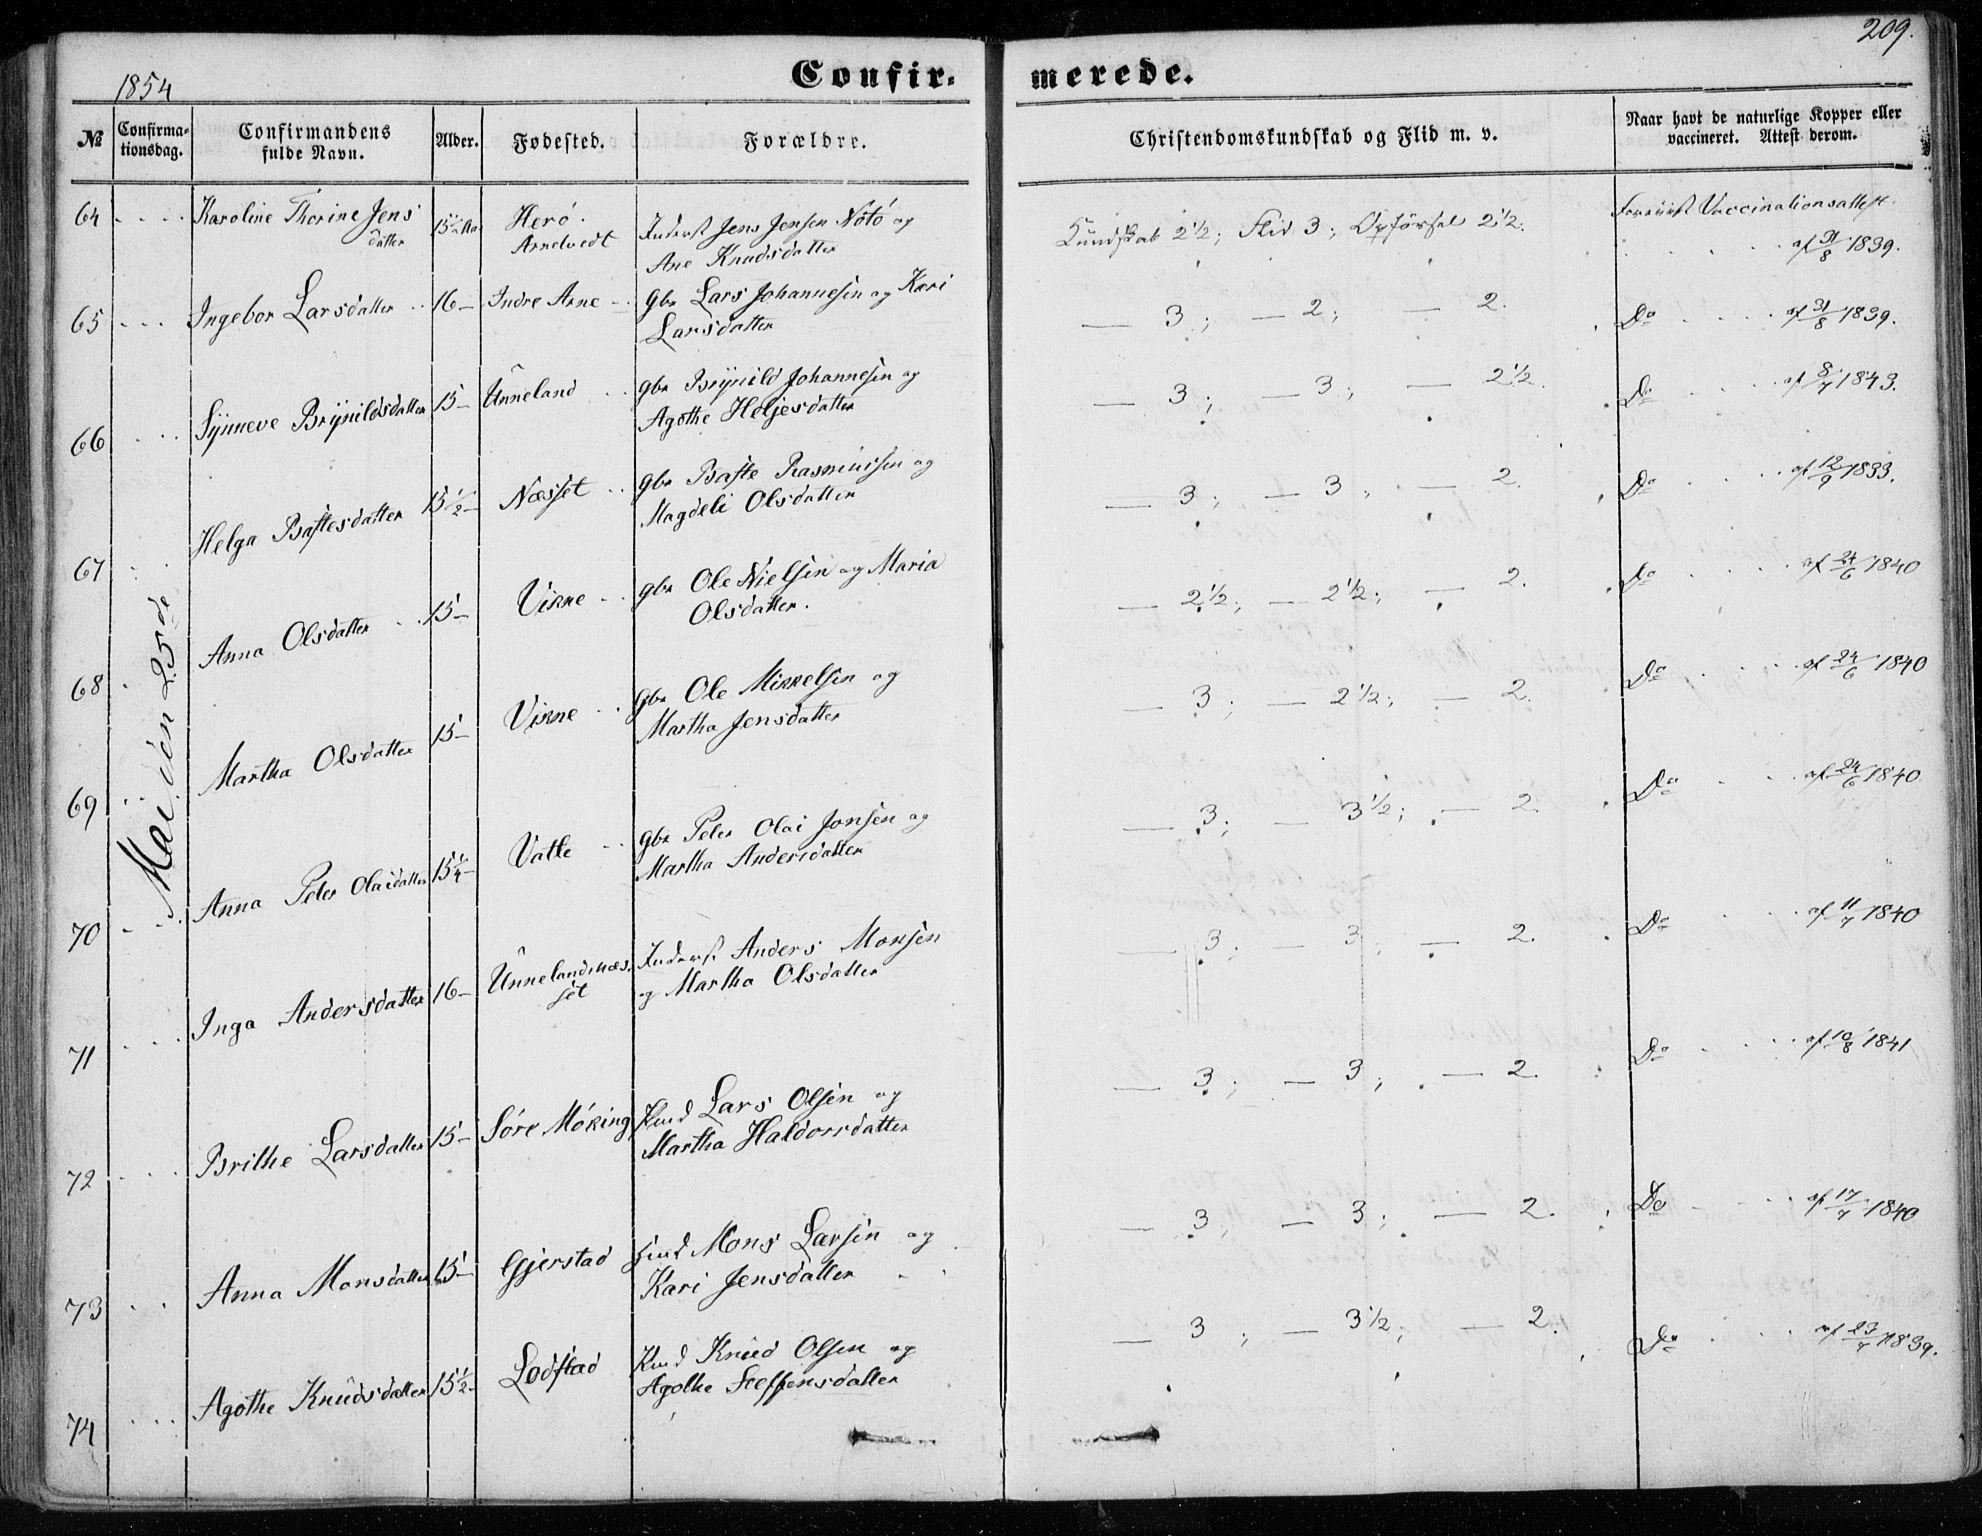 209.
1854
Confir- merede.
№ Confirma- tionsdag. Confirmandens fulde Navn. Alder. Fødested. Forældre. Christendomskundskab og Flid m. v. Naar havt de naturlige Kopper eller vaccineret. Attest derom.
Mai den 25de
64 Karoline Thorine Jens Herö. Inderst Jens Jensen Nötö og Kundskab 2 1/2; Flid 3; Opförsel 2 1/2. Foreviist Vaccinationsattest
datter Arnetvedt Ane Knudsdatter af 31/8 1839.
65 Ingebor Larsdatter 16 — Indre Arne gbr Lars Johannesen og Kari — 3; — 2; — 2. Do af 31/8 1839.
Larsdatter
66 Synneve Brynildsdatter 15 — Unneland gbr Brynild Johannesen og — 3; — 3; — 2 1/2. Do af 8/7 1843.
Agothe Heljesdatter
67 Helga Bastesdatter 15 1/2 — Næsset gbr Baste Rasmussen og — 3; — 3; — 2. Do af 12/9 1833.
Magdeli Olsdatter
68 Anna Olsdatter 15 — Vikne gbr Ole Nielsen og Maria — 2 1/2; — 2 1/2; — 2. Do af 24/6 1840
Olsdatter.
69 Martha Olsdatter 15 — Vikne gbr Ole Mikkelsen og — 3; — 2 1/2; — 2. Do af 24/6 1840
Martha Jensdatter
70 Anna Peter Olaidatter 15 1/4 — Vatle gbr Peter Olai Jonsen og — 3; — 3 1/2; — 2. Do af 24/6 1840
Martha Andersdatter
71 Inga Andersdatter 16 — Unnelandsnæs- Inderst Anders Monsen — 3; — 3; — 2. Do af 11/7 1840
set og Martha Olsdatter
72 Brithe Larsdatter 15 — Söre Möking Hmd Lars Olsen og — 3; — 3; — 2. Do af 10/8 1841
Martha Haldorsdatter
73 Anna Monsdatter 15 — Gjerstad Hmd Mons Larsen og — 3; — 3; — 2. Do af 17/7 1840
Kari Jensdatter
74 Agothe Knudsdatter 15 1/2 — Lodstad Hmd Knud Olsen og — 3; — 3 1/2; — 2. Do af 23/7 1839.
Agothe Steffensdatter